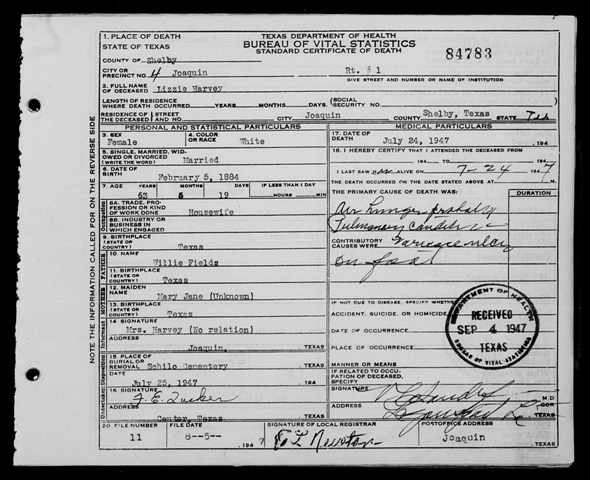 1. PLACE OF DEATH
STATE OF TEXAS
TEXAS DEPARTMENT OF HEALTH
BUREAU OF VITAL STATISTICS
STANDARD CERTIFICATE OF DEATH
84783
COUNTY OF Shelby
CITY OR PRECINCT NO. 4 Joaquin
Rt. # 1
GIVE STREET AND NUMBER OR NAME OF INSTITUTION
2. FULL NAME OF DECEASED Lizzie Harvey
LENGTH OF RESIDENCE WHERE DEATH OCCURRED YEARS MONTHS DAYS
(SOCIAL SECURITY NO.
RESIDENCE OF THE DECEASED STREET AND NO. CITY Joaquin COUNTY Shelby, Texas STATE
PERSONAL AND STATISTICAL PARTICULARS
3. SEX Female
4. COLOR OR RACE White
5. SINGLE, MARRIED, WIDOWED OR DIVORCED (WRITE THE WORD) Married
6. DATE OF BIRTH February 5, 1884
7. AGE YEARS MONTHS DAYS IF LESS THAN 1 DAY
63 5 19 HOURS MIN
8A. TRADE, PROFESSION OR KIND OF WORK DONE Housewife
8B. INDUSTRY OR BUSINESS IN WHICH ENGAGED
9. BIRTHPLACE (STATE OR COUNTRY) Texas
10. NAME Willie Fields
11. BIRTHPLACE (STATE OR COUNTRY) Texas
12. MAIDEN NAME Mary Jane (Unknown)
13. BIRTHPLACE (STATE OR COUNTRY) Texas
14. SIGNATURE Mrs. Harvey (No relation)
ADDRESS Joaquin, TEXAS
15. PLACE OF BURIAL OR REMOVAL Schilo Cementery TEXAS
DATE July 25, 1947
16. SIGNATURE
ADDRESS Center, Texas TEXAS
MEDICAL PARTICULARS
17. DATE OF DEATH July 24, 1947 194
18. I HEREBY CERTIFY THAT I ATTENDED THE DECEASED FROM
194 TO 194
I LAST SAW ALIVE ON 7-24 1947
THE DEATH OCCURRED ON THE DATE STATED ABOVE AT M.
THE PRIMARY CAUSE OF DEATH WAS: DURATION
Air hunger probably
Pulmonary
CONTRIBUTORY CAUSES WERE
on foot
IF NOT DUE TO DISEASE, SPECIFY WHETHER
ACCIDENT, SUICIDE, OR HOMICIDE
DATE OF OCCURRENCE
PLACE OF OCCURRENCE
MANNER OR MEANS
IF RELATED TO OCCUPATION OF DECEASED, SPECIFY
SIGNATURE M.D.
ADDRESS TEXAS
DEPARTMENT OF HEALTH
RECEIVED
SEP 4 1947
TEXAS
BUREAU OF VITAL STATISTICS
20 FILE NUMBER 11
FILE DATE 8-5-- 1947
SIGNATURE OF LOCAL REGISTRAR
POSTOFFICE ADDRESS Joaquin TEXAS
NOTE THE INFORMATION CALLED FOR ON THE REVERSE SIDE